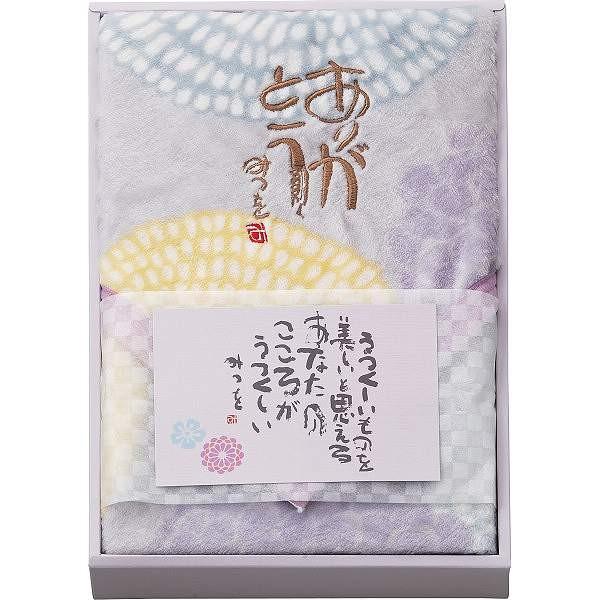 ありが
とう
みつを
うつくしいものを
美しいと思える
あなたの
こころが
うつくしい
みつを